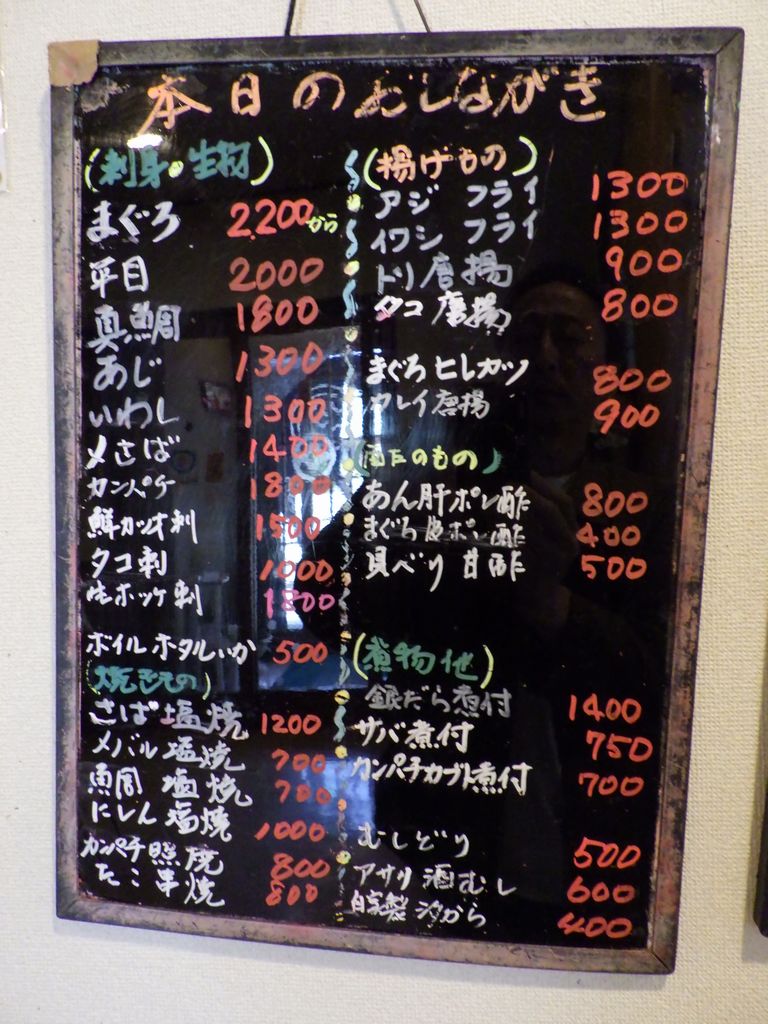 本日のおしながき
(刺身・生物)
まぐろ 2,200から
平目 2000
真鯛 1800
あじ 1300
いわし 1300
〆さば 1400
カンパチ 1800
鮮カツオ刺 1500
タコ刺 1000
生ホッケ刺 1800
ボイルホタルいか 500
(焼きもの)
さば塩焼 1200
メバル塩焼 700
魚周塩焼 780
にしん塩焼 1000
カンパチ照焼 800
たこ串焼 800
(揚げもの)
アジフライ 1300
イワシフライ 1300
トリ唐揚 900
タコ唐揚 800
まぐろヒレカツ 800
カレイ唐揚 900
(酢のもの)
あん肝ポン酢 800
まぐろ皮ポン酢 400
貝べり甘酢 500
(煮物他)
銀だら煮付 1400
サバ煮付 750
カンパチカブト煮付 700
むしどり 500
アサリ酒むし 600
自家製汐から 400